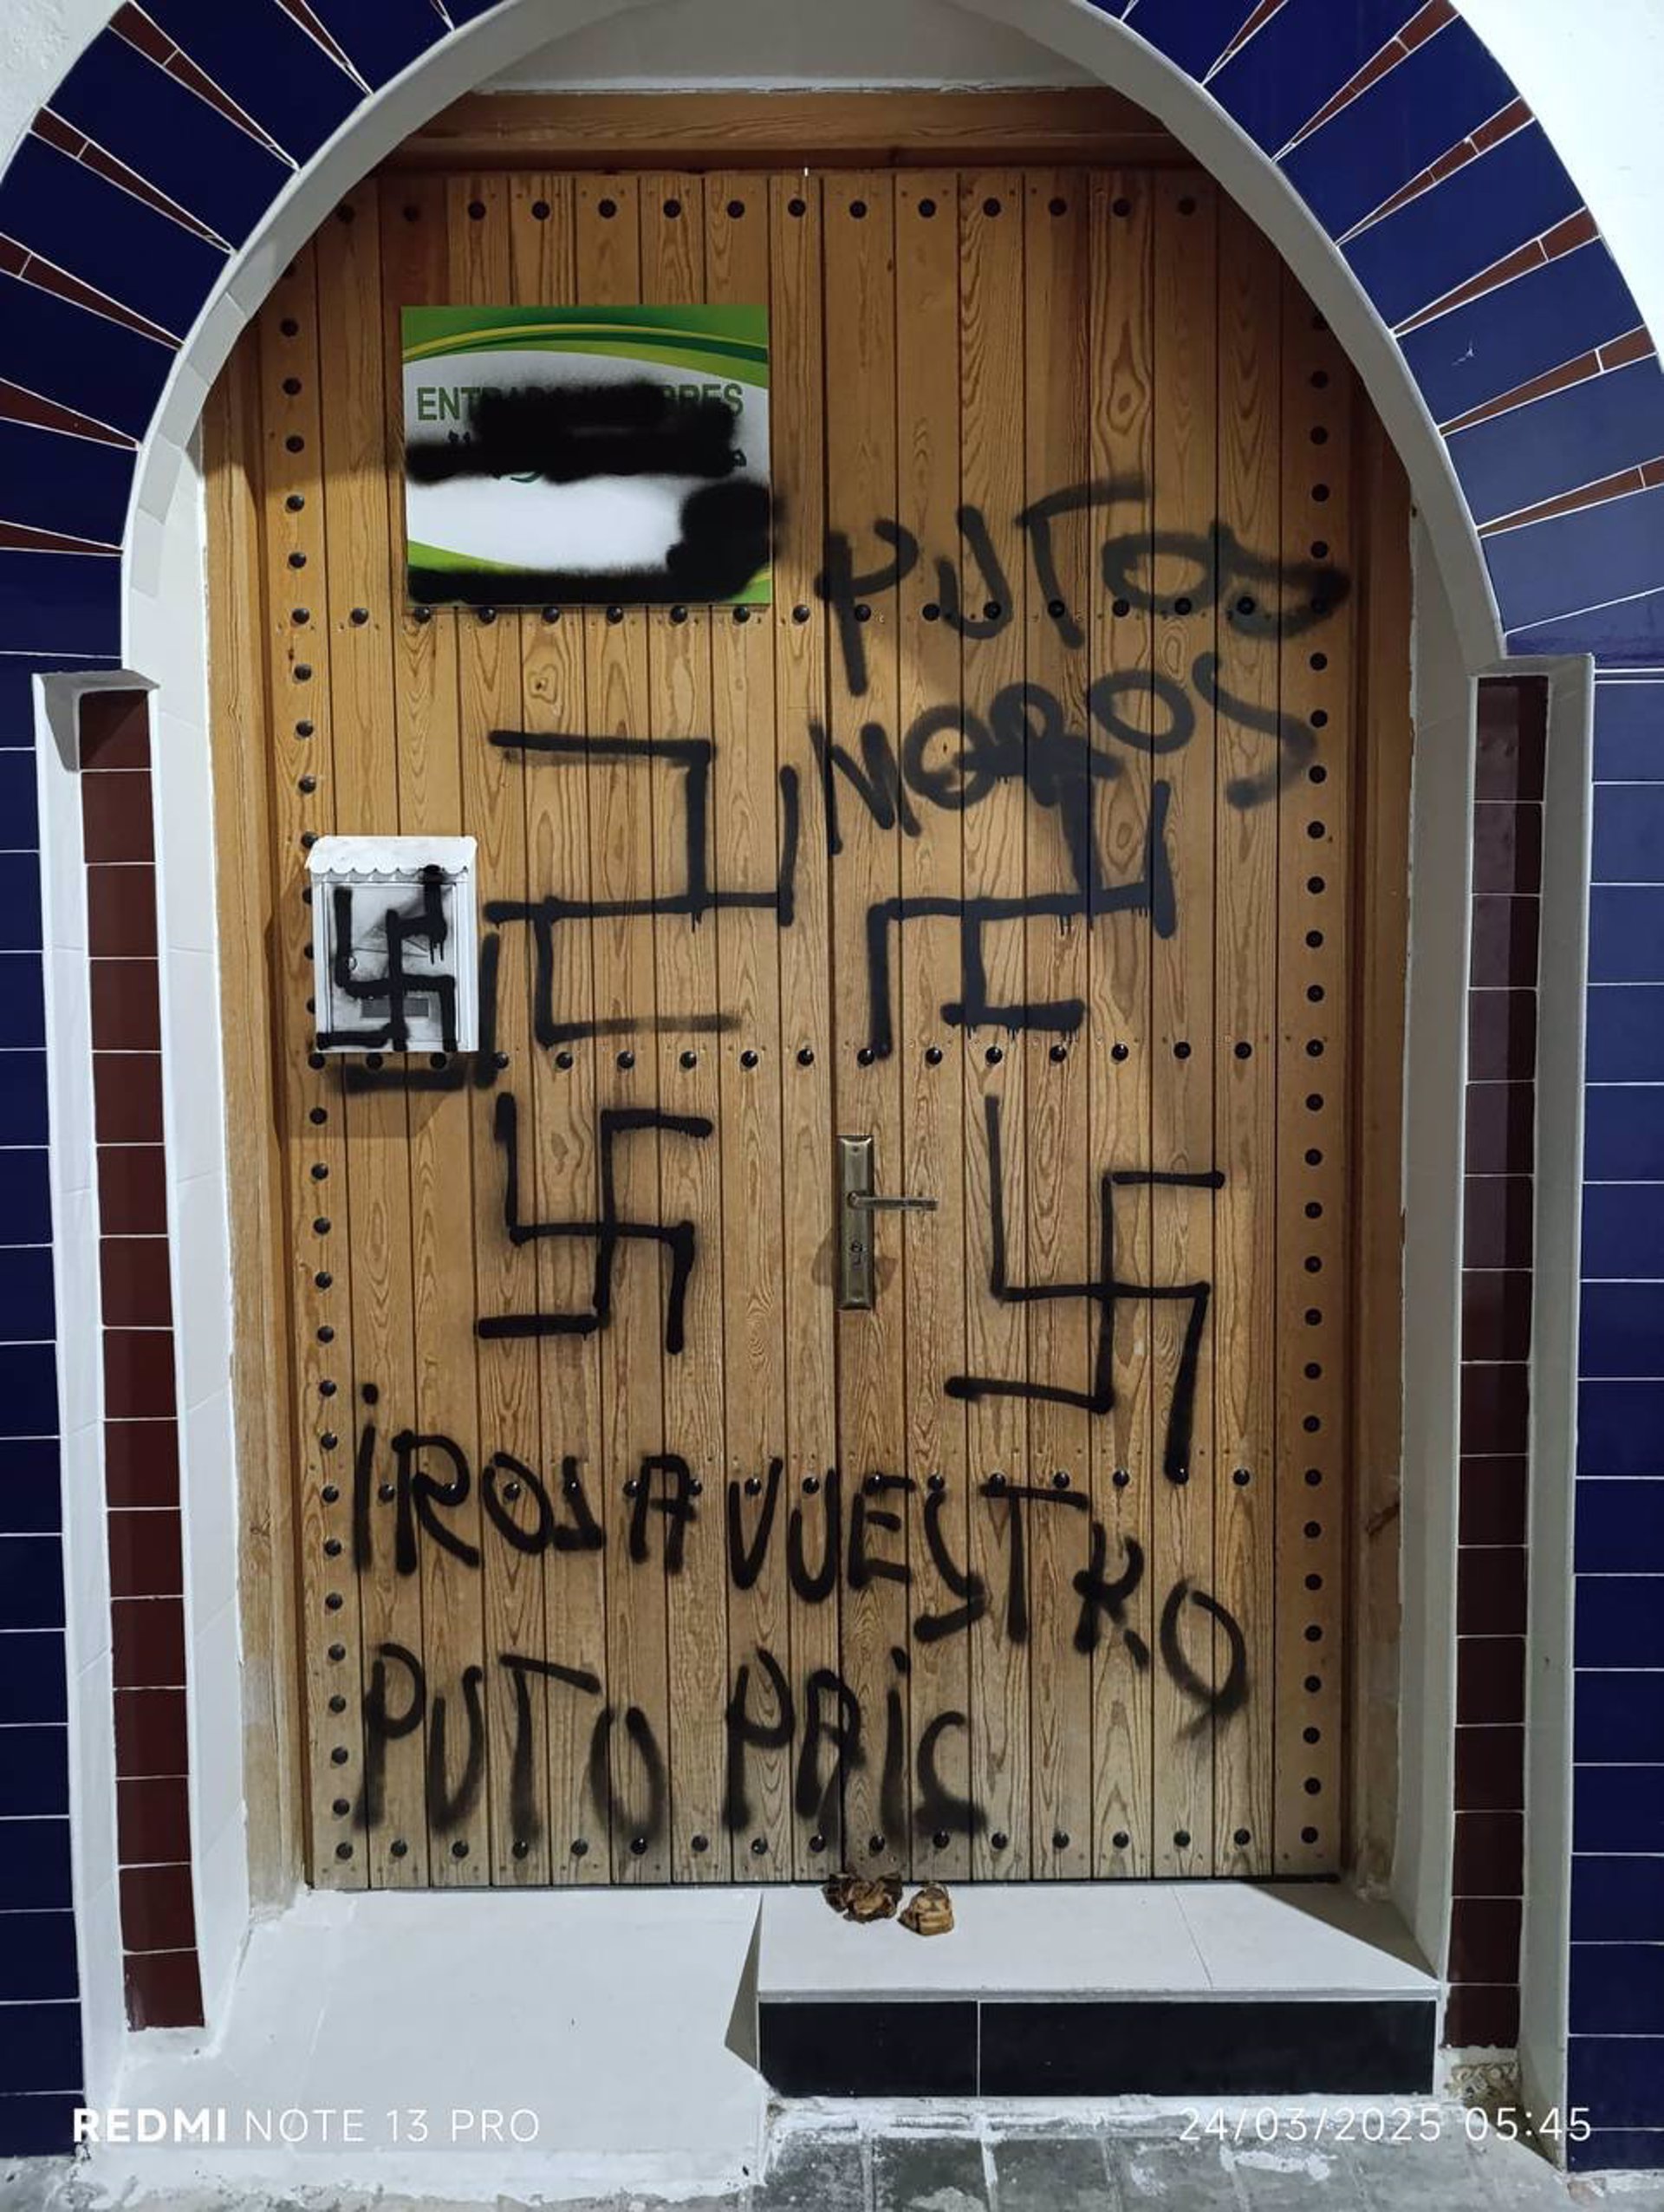 ENTRADA HOMBRES
PUTOS
MOROS
IROS A VUESTRO
PUTO PAIS
REDMI NOTE 13 PRO
24/03/2025 05:45